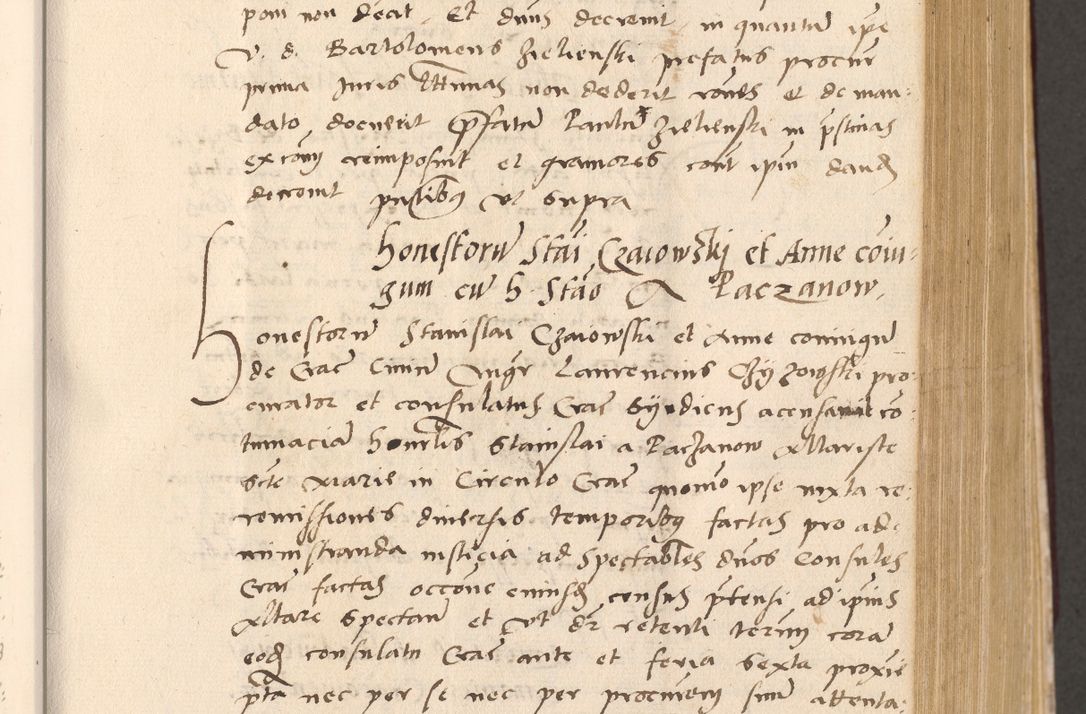 poni non debeat. Et dnus decrevit, in quantu ipse
V. d. Bartolomeus Zielienski prefatus procur
prima Juris ttminas non dederit rones et de man-
dato docuerit prfatu Paulu Zielienski in prstinas
excom reimposuit et graviores cont ipm dand
decrevit pntibus ut supra
honestoru Stai Czaiowski et Anne coiu-
gum cu h. Stao a Paczanow.
Honestoru Stanislai Czaiowski et Anne coniugu
de Crac Civiu Laurencius Chyzowski pro-
curator et consulatus Crac Syndicus acusavit co-
tumacia honorlis Stanislai a Paczanow Altariste
Scte Marie in Circulo Crac quomo ipse iuxta re-
remissiones diversis temporibus factas pro ad-
ministranda iusticia ad Spectables dnos Consules
Crac factas occone census prtensi ad ipius
Altare Spectan et ut dr retenti termi cora
eod consulatu Crac ante et feria Sexta proxie
prta nec per se nec per procurem suu attenta-